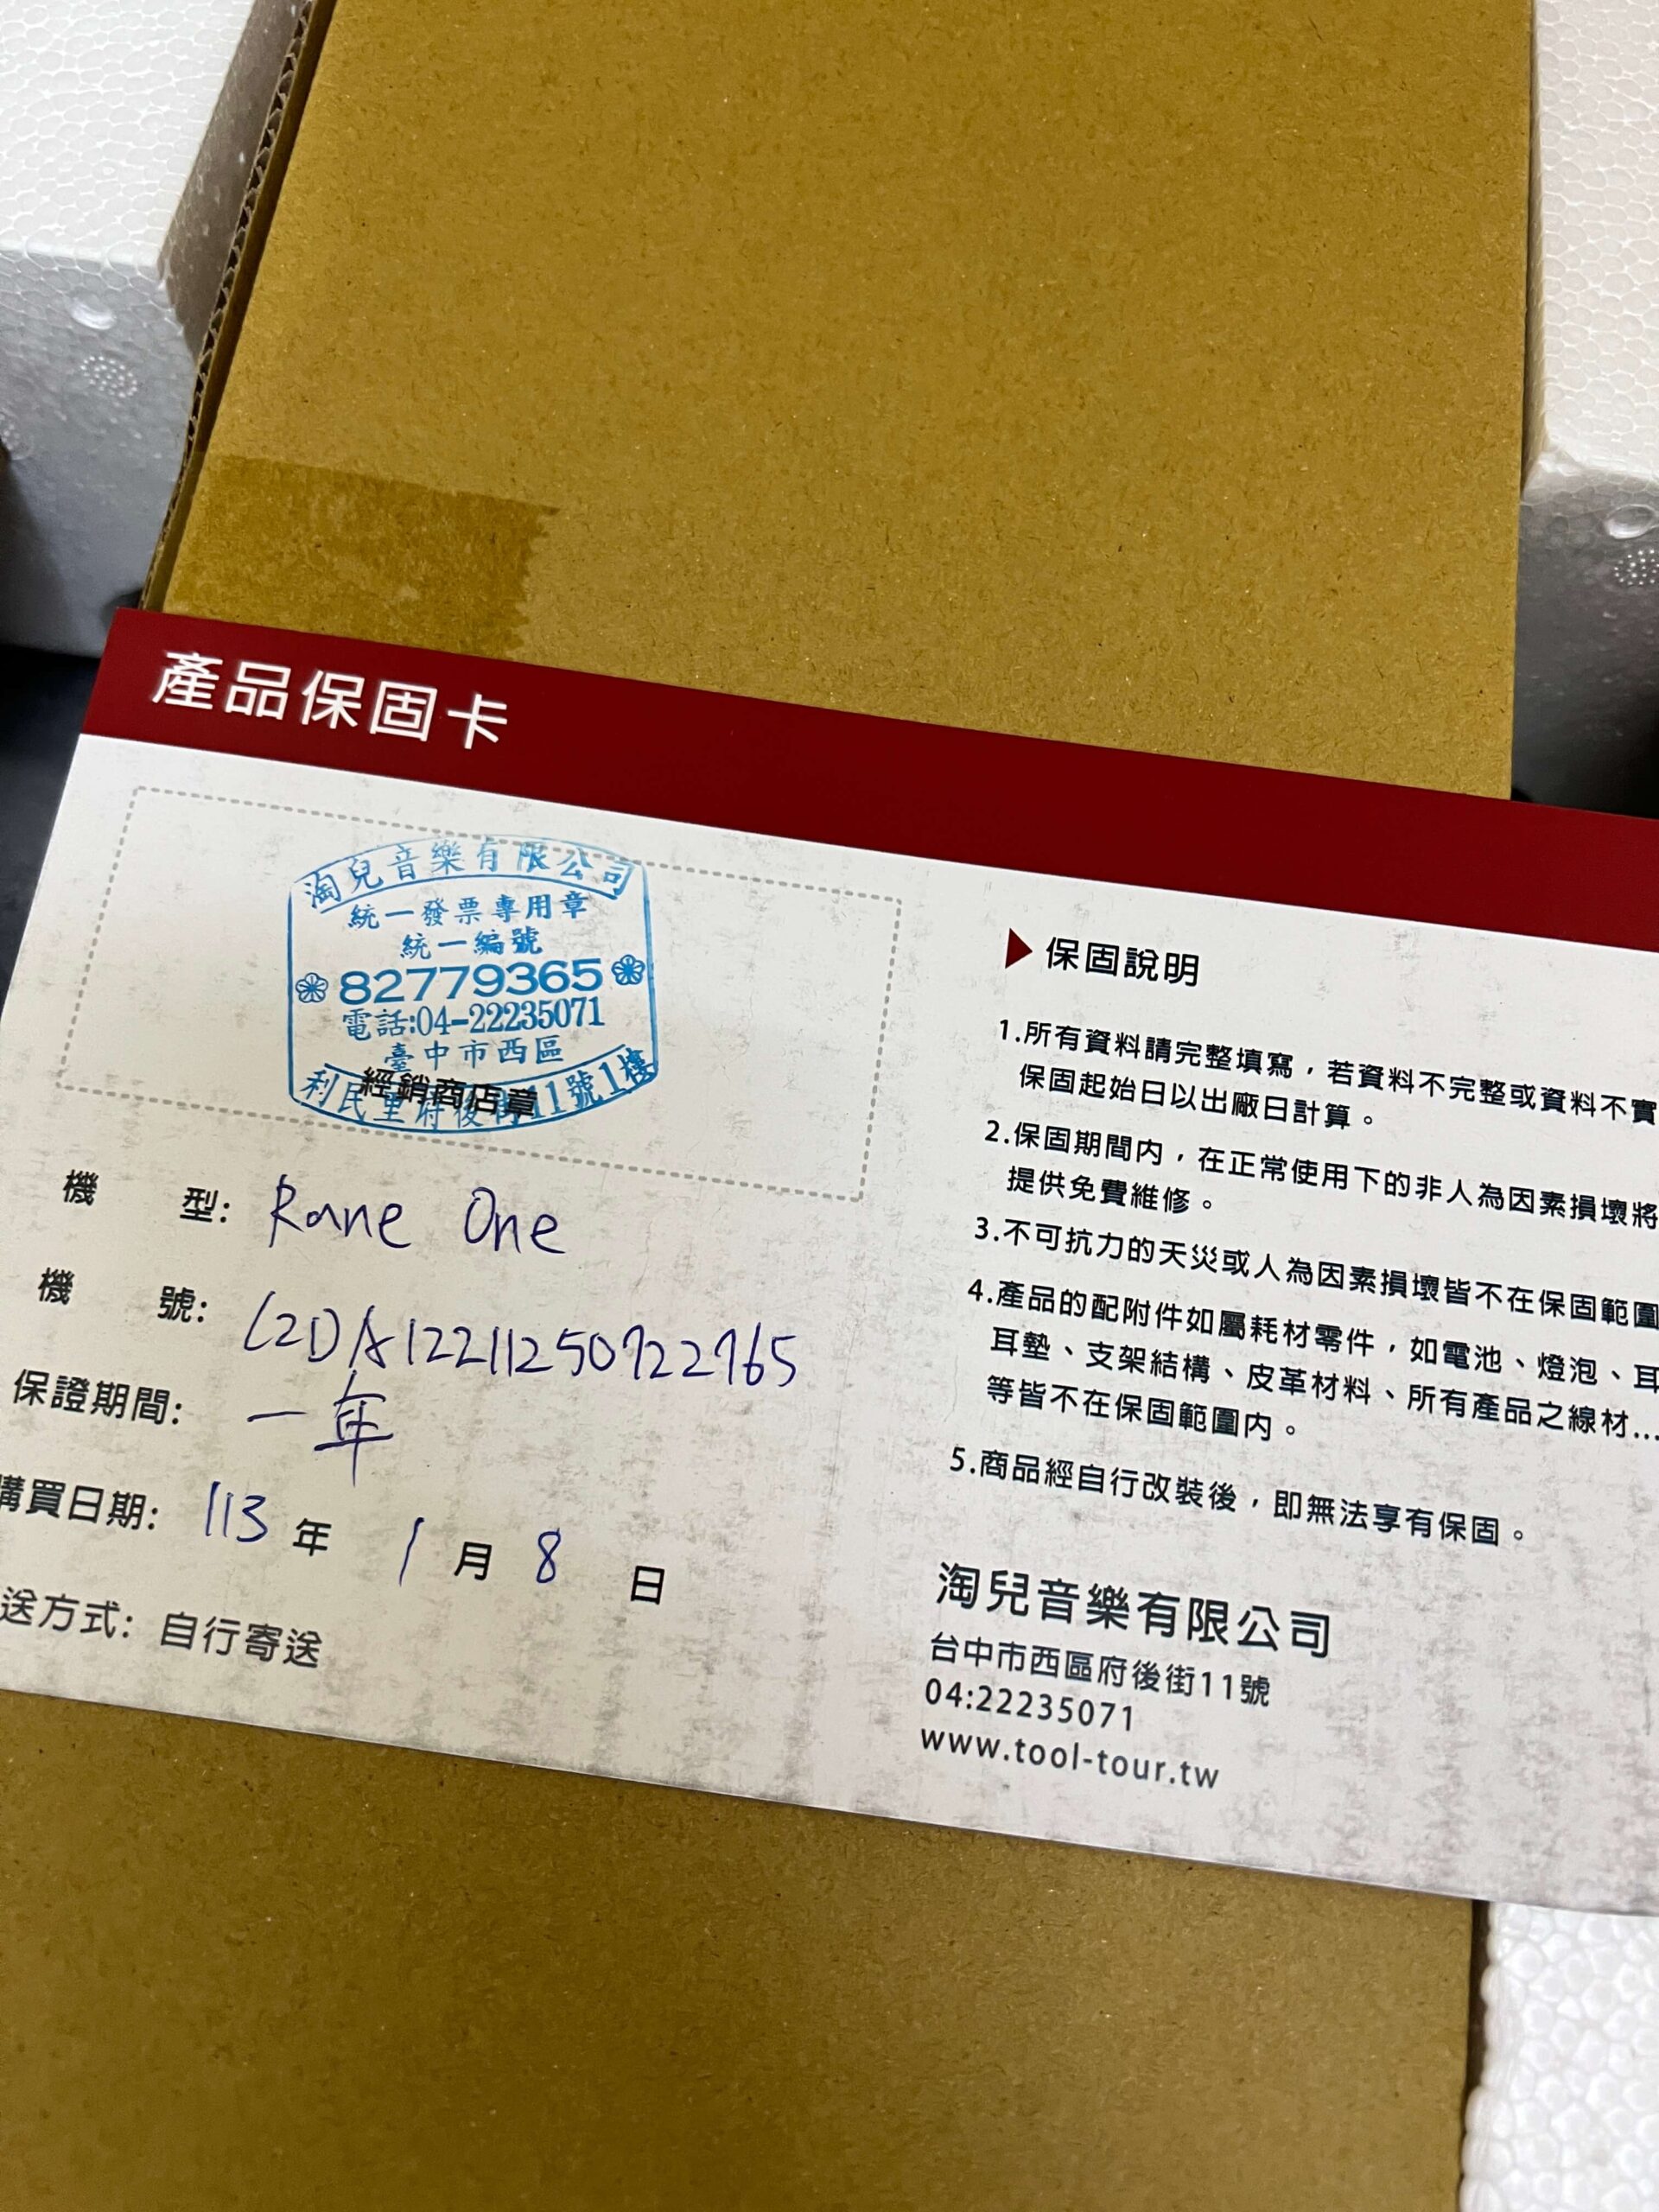 產品保固卡
淘兒音樂有限公司
統一發票專用章
統一編號
82779365
電話:04-22235071
臺中市西區
利民里府後街11號1樓
經銷商店章
機 型: Rane One
機 號: (21)A12211250722765
保證期間: 一年
購買日期: 113 年 1 月 8 日
送方式: 自行寄送
保固說明
1.所有資料請完整填寫，若資料不完整或資料不實
保固起始日以出廠日計算。
2.保固期間內，在正常使用下的非人為因素損壞將
提供免費維修。
3.不可抗力的天災或人為因素損壞皆不在保固範圍
4.產品的配附件如屬耗材零件，如電池、燈泡、耳
耳墊、支架結構、皮革材料、所有產品之線材...
等皆不在保固範圍內。
5.商品經自行改裝後，即無法享有保固。
淘兒音樂有限公司
台中市西區府後街11號
04:22235071
www.tool-tour.tw